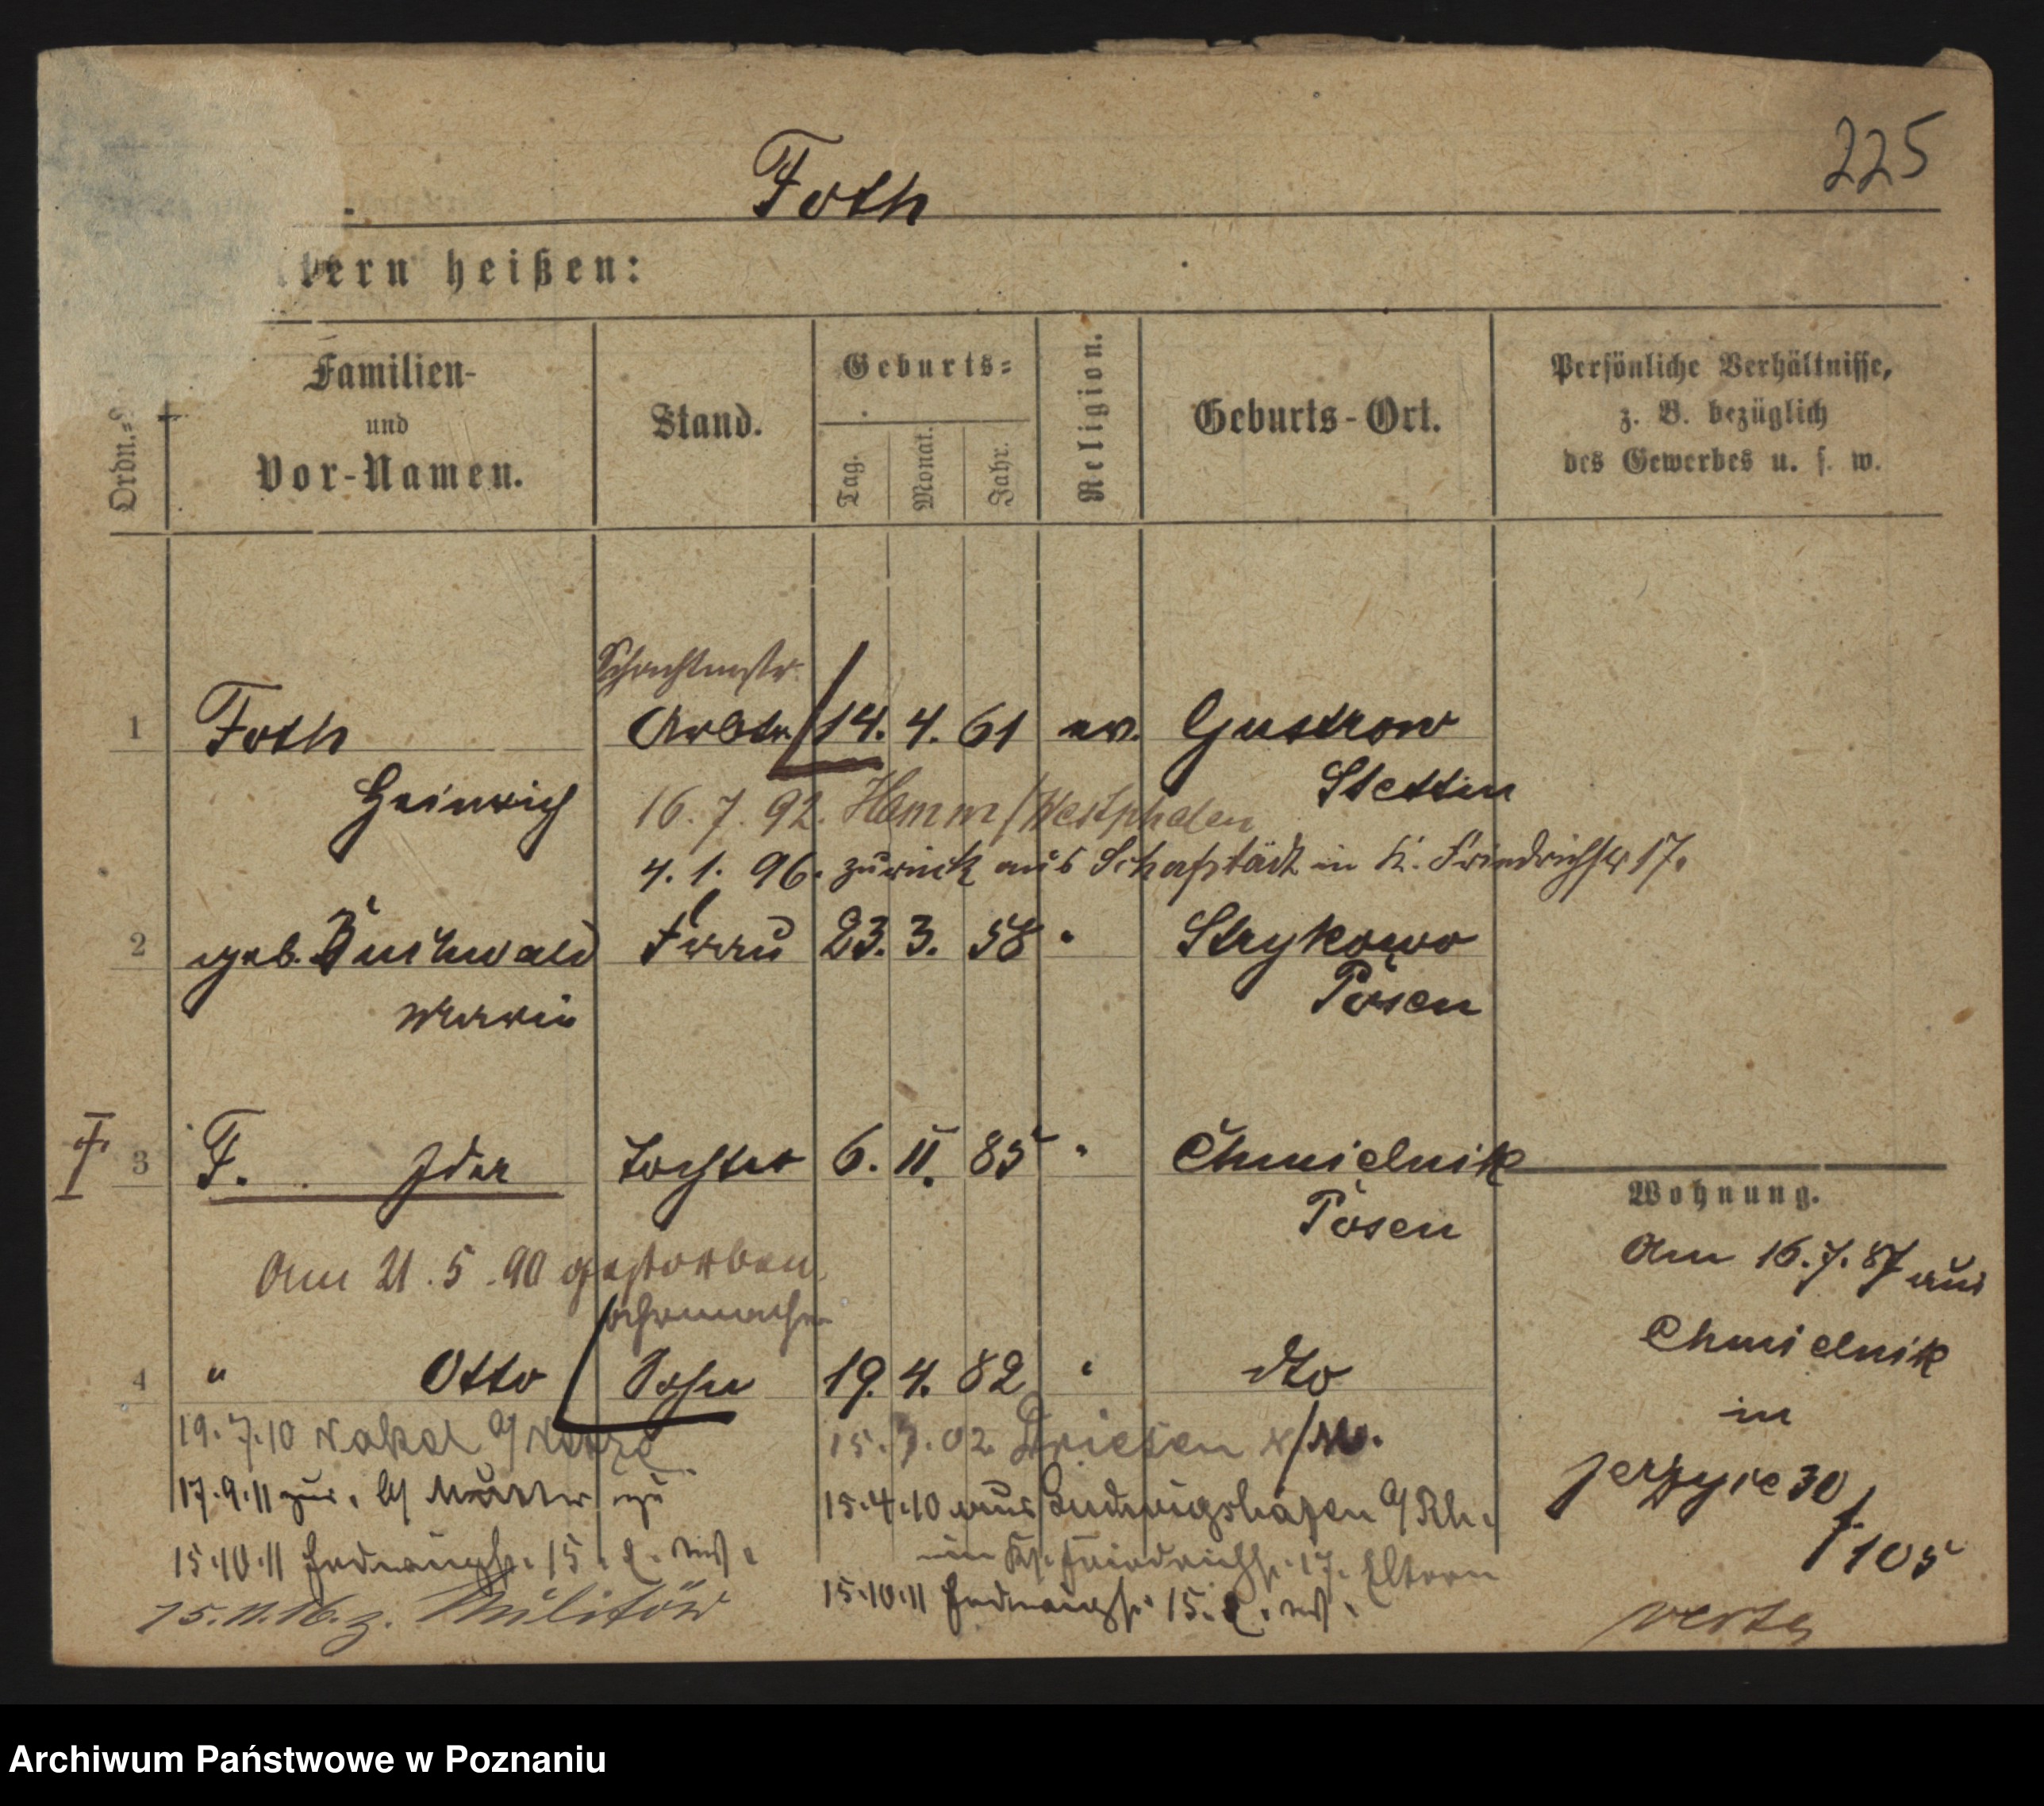 225
Foth
ltern heißen:
Ordn.=
Familien-
und
Vor-Namen.
Stand.
Geburts=
Tag.
Monat.
Jahr.
Religion.
Geburts-Ort.
Persönliche Verhältnisse,
z. B. bezüglich
des Gewerbes u. s. w.
Schachtmstr.
1 Foth Arbtr. 14. 4. 61 ev. Gustrow
Heinrich Stettin
16. 7. 92. Hamm/Westphalen
4. 1. 96. zurück aus Schafstädt in K. Friedrichstr 17.
2 geb. Buchwald Frau 23. 3. 58 " Strykowo
Marie Posen
3 F. Ida Tochter 6. 11. 85 " Chmielnik
Posen
Am 21. 5. 90 gestorben.
4 " Otto Sohn 19. 4. 82 " dto
19. 7. 10 Nakel a/Netze
15. 3. 02. Driesen N/M.
17. 9. 11 zur. b/ Mutter
15. 4. 10 aus Ludwigshafen a/Rh.
in K. Friedrichstr. 17. Eltern
15. 10. 11 15.
15. 10. 11 15.
15. 11. 16. z. Militär
Wohnung.
Am 16. 7. 87 aus
Chmielnik
in
Jerzyce 30
f. 105
verte
Archiwum Państwowe w Poznaniu